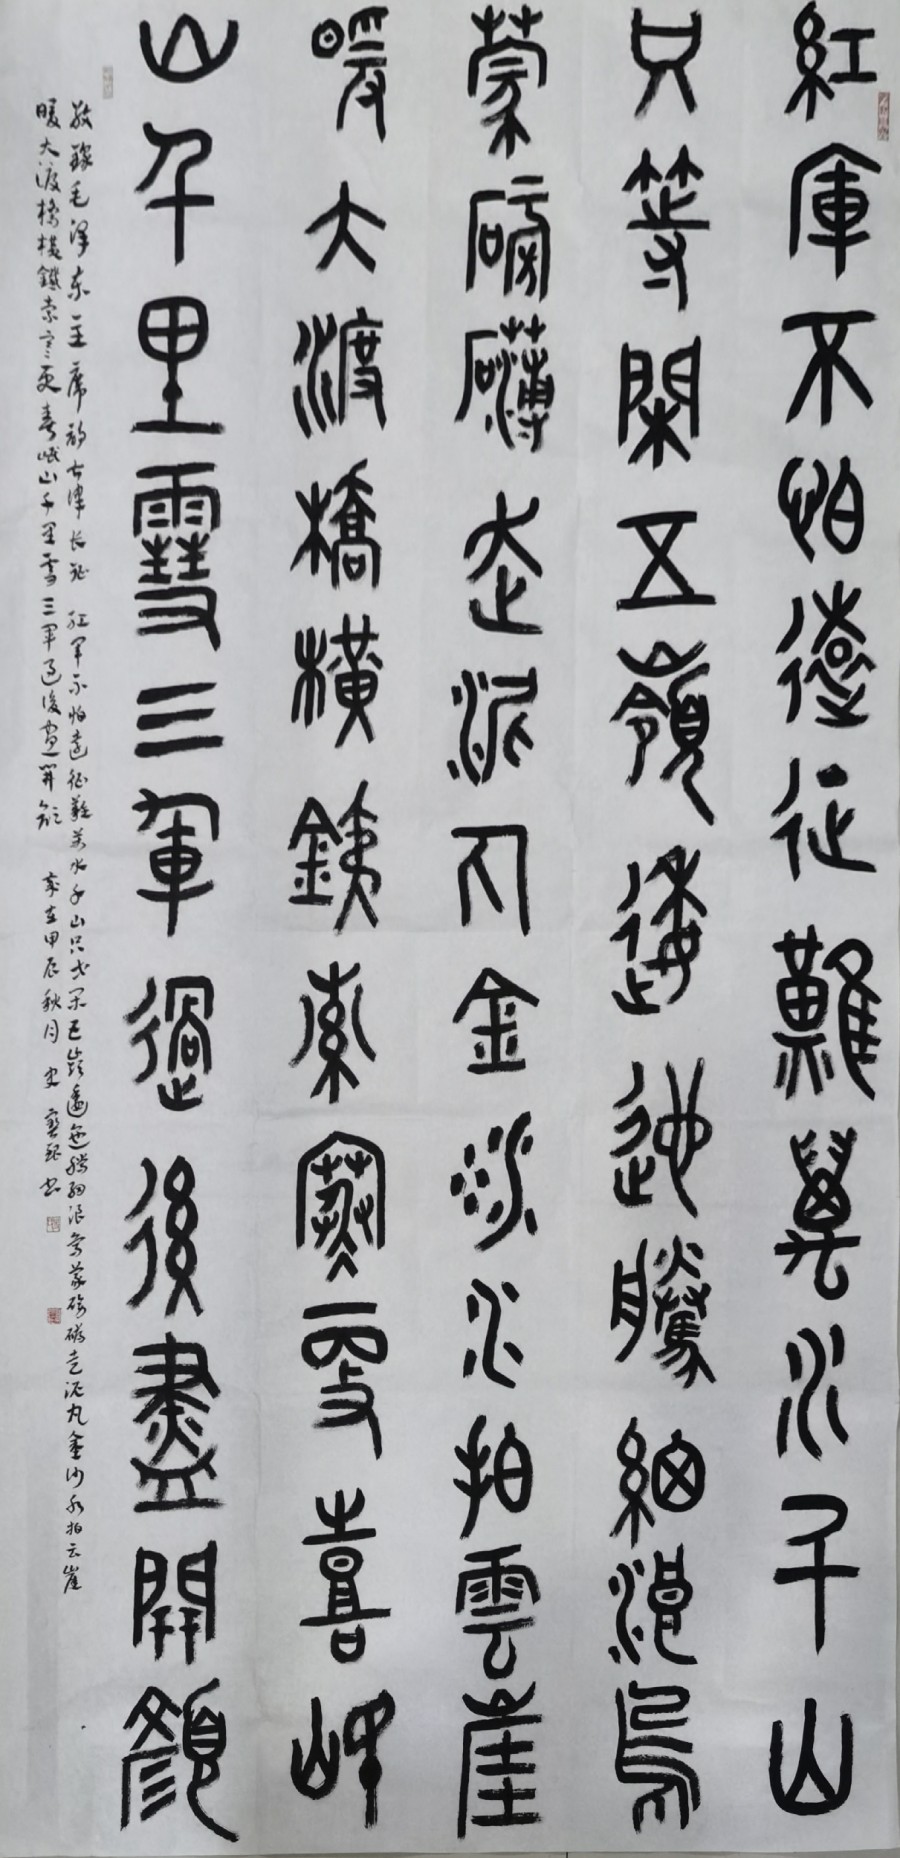 紅軍不怕遠征難萬水千山
只等閑五嶺逶迤騰細浪烏
蒙磅礴走泥丸金沙水拍雲崖
暖大渡橋橫鐵索寒更喜岷
山千里雪三軍過後盡開顏
敬錄毛泽东主席詩七律长征 红军不怕远征難万水千山只等闲五嶺逶迤腾细浪烏蒙磅礴走泥丸金沙水拍云崖
暖大渡橋横鐵索寒更喜岷山千里雪三軍过後盡開颜 歲在甲辰秋月 史 书